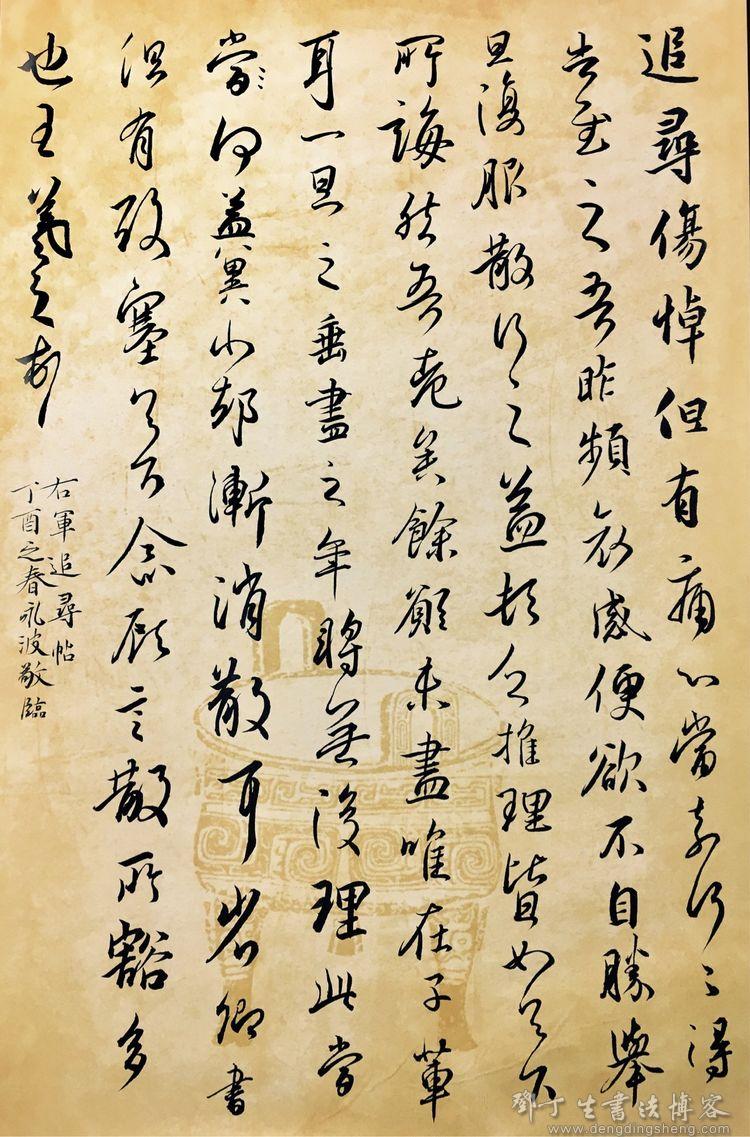 追尋傷悼但有痛心當奈何〻得
告慰之吾昨頻哀感便欲不自勝舉
旦復服散行〻之益頓乏推理皆如足下
所誨然吾老矣餘願未盡唯在子輩
耳一旦之垂盡之年將無復理此當
當何益冀小却漸消散耳省卿書
但有酸塞足下念顧言散所豁多
也王羲之頓首
右軍追尋帖
丁酉之春礼波敬臨
鄧丁生書法博客
www.dengdingsheng.com